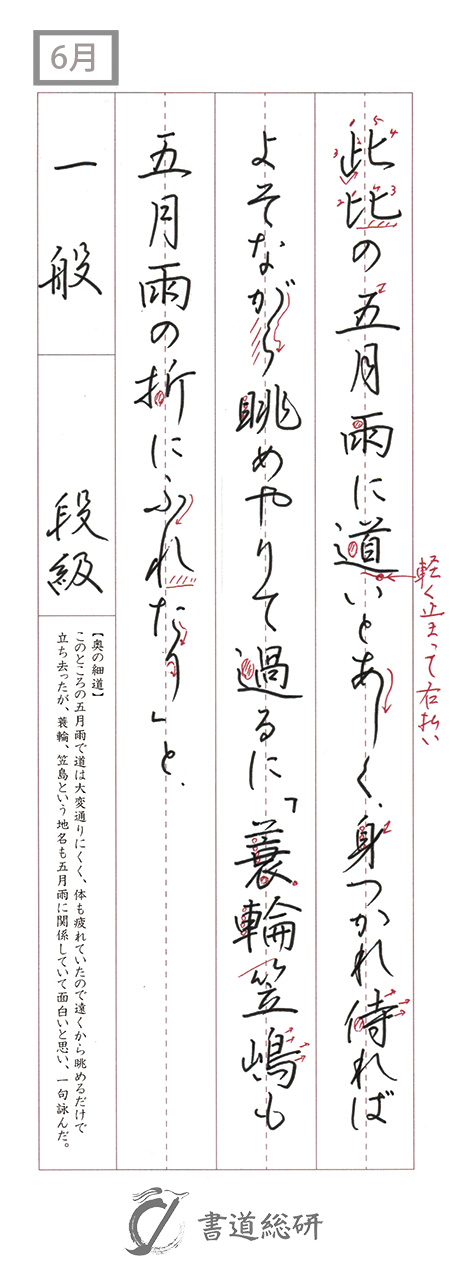 6月
此比の五月雨に道いとあしく、身つかれ侍れば
軽く止まって右払い
よそながら眺めやりて過るに「蓑輪笠嶋も
五月雨の折にふれたり」と、
一般
段級
【奥の細道】
このところの五月雨で道は大変通りにくく、体も疲れていたので遠くから眺めるだけで
立ち去ったが、蓑輪、笠島という地名も五月雨に関係していて面白いと思い、一句詠んだ。
書道総研